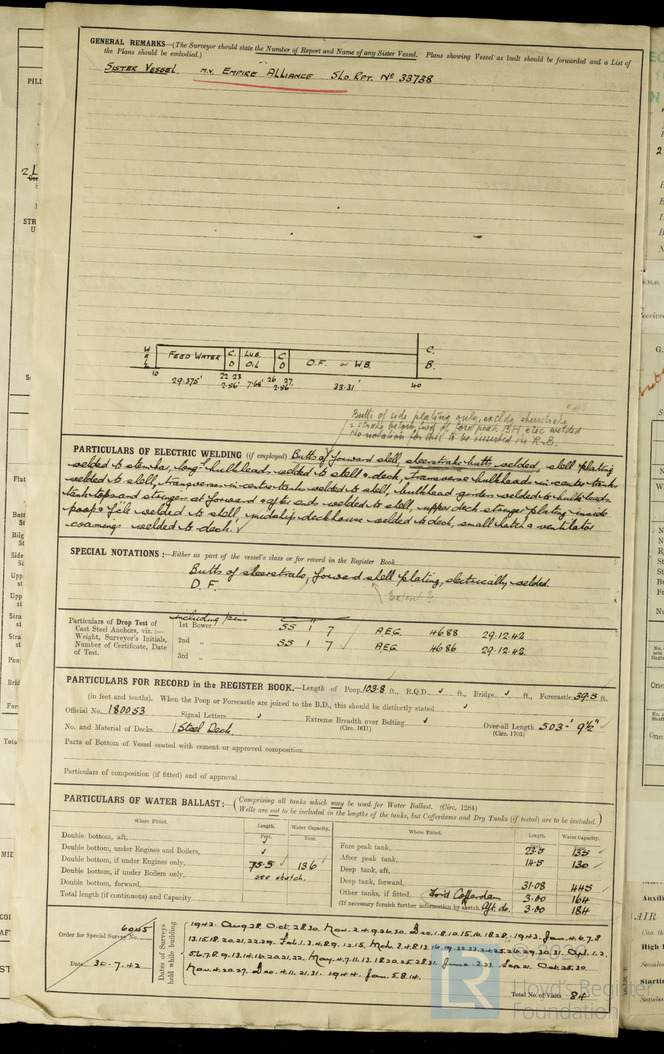 GENERAL REMARKS—(The Surveyor should state the Number of Report and Name of any Sister Vessel. Plans showing Vessel as built should be forwarded and a List of
the Plans should be embodied.)
SISTER VESSEL. M.V. EMPIRE ALLIANCE SLD. RPT. No 33738
WELL FEED WATER C.D LUB. OIL C.D O.F. or W.B. C.B.
10 22 23 26 27 40
29.375' 2.56' 7.68' 2.56' 33.31'
Butts of side plating only, excldg sheerstrake
No notation for this to be inserted in R.B.
PARTICULARS OF ELECTRIC WELDING (if employed) Butts of forward shell, sheerstrake butts, welded, shell plating
welded to stembar, longl bulkheads welded to shell & deck, transverse bulkheads in centre tanks
welded to shell, transverses in centre tanks welded to shell, bulkhead girders welded to bulkheads
tank top and stringers at forward & after ends welded to shell, upper deck stringer plating inside
poop & f'cle welded to shell, midship deckhouse welded to deck, small hatch & ventilator
coamings welded to deck.
SPECIAL NOTATIONS:—Either as part of the vessel's class or for record in the Register Book
Butts of sheerstrake, forward shell plating, electrically welded.
D.F.
Extent?
Particulars of Drop Test of
Cast Steel Anchors, viz.:—
Weight, Surveyor's Initials,
Number of Certificate, Date
of Test.
including pins
1st Bower 55 1 7 AEG. 4688 29.12.42
2nd „ 55 1 7 AEG. 4686 29.12.42.
3rd „
PARTICULARS FOR RECORD in the REGISTER BOOK.—Length of Poop 103.8 ft., R.Q.D. ft., Bridge ft., Forecastle 39.3 ft.
(in feet and tenths). When the Poop or Forecastle are joined to the B.D., this should be distinctly stated.
Official No. 180053 Signal Letters Extreme Breadth over Belting Over-all Length 503'-9½"
(Circ. 1611) (Circ. 1703)
No. and Material of Decks 1 Steel Deck.
Parts of Bottom of Vessel coated with cement or approved composition
Particulars of composition (if fitted) and of approval
PARTICULARS OF WATER BALLAST:—(Comprising all tanks which may be used for Water Ballast. (Circ. 1284)
Wells are not to be included in the lengths of the tanks, but Cofferdams and Dry Tanks (if tested) are to be included.)
Where Fitted. Length. Water Capacity. Where Fitted. Length. Water Capacity.
Feet. Tons.
Double bottom, aft,
Double bottom, under Engines and Boilers,
Double bottom, if under Engines only, 75.5 136
Double bottom, if under Boilers only, see sketch.
Double bottom, forward,
Total length (if continuous) and Capacity
Fore peak tank, 23.5 135
After peak tank, 14.5 130
Deep tank, aft,
Deep tank, forward, 31.08 445
Other tanks, if fitted, Ford Cofferdam 3.00 164
(If necessary furnish further information by sketch.) Aft. do. 3.00 184
Order for Special Survey No. 6045
Date 30.7.42
Dates of Surveys
held while building
1942. Aug. 28. Oct. 28.30. Nov. 2.4.9.26.30. Dec. 1.8.10.15.16.18.28. 1943. Jan. 4.6.7.8
Total No. of Visits 84
© 2020
LR
Lloyd's Register
Foundation